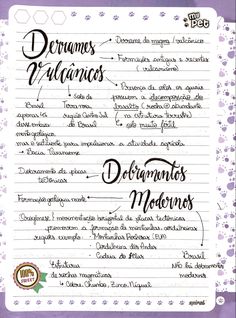 my Pet
Derrames Vulcânicos
→ Derrame de magma / vulcânico
→ Formações antigas e recentes
(vulcanismo)
→ Presença de solos os quais
possuem a decomposição do
basalto (rocha abundante
na crosta terrestre)
↳ solo muito fértil
↳ Solo de
Brasil Terra roxa
região Centro Sul
do Brasil
mas o suficiente para impulsionar a atividade agrícola
→ Bacia Paranaense
Dobramentos Modernos
Dobramento de placas
tectônicas
Formação geológica recente
Orogênese / movimentação horizontal de placas tectônicas
promoveram a formação de montanhas, cordilheiras
→ Montanhas Rochosas (EUA)
→ Cordilheira dos Andes
→ Cadeia do Atlas
Estrutura
de rochas magmáticas
↳ Cobre, Chumbo, Zinco, Níquel
Brasil
Não há dobramentos
modernos
100%
spiral